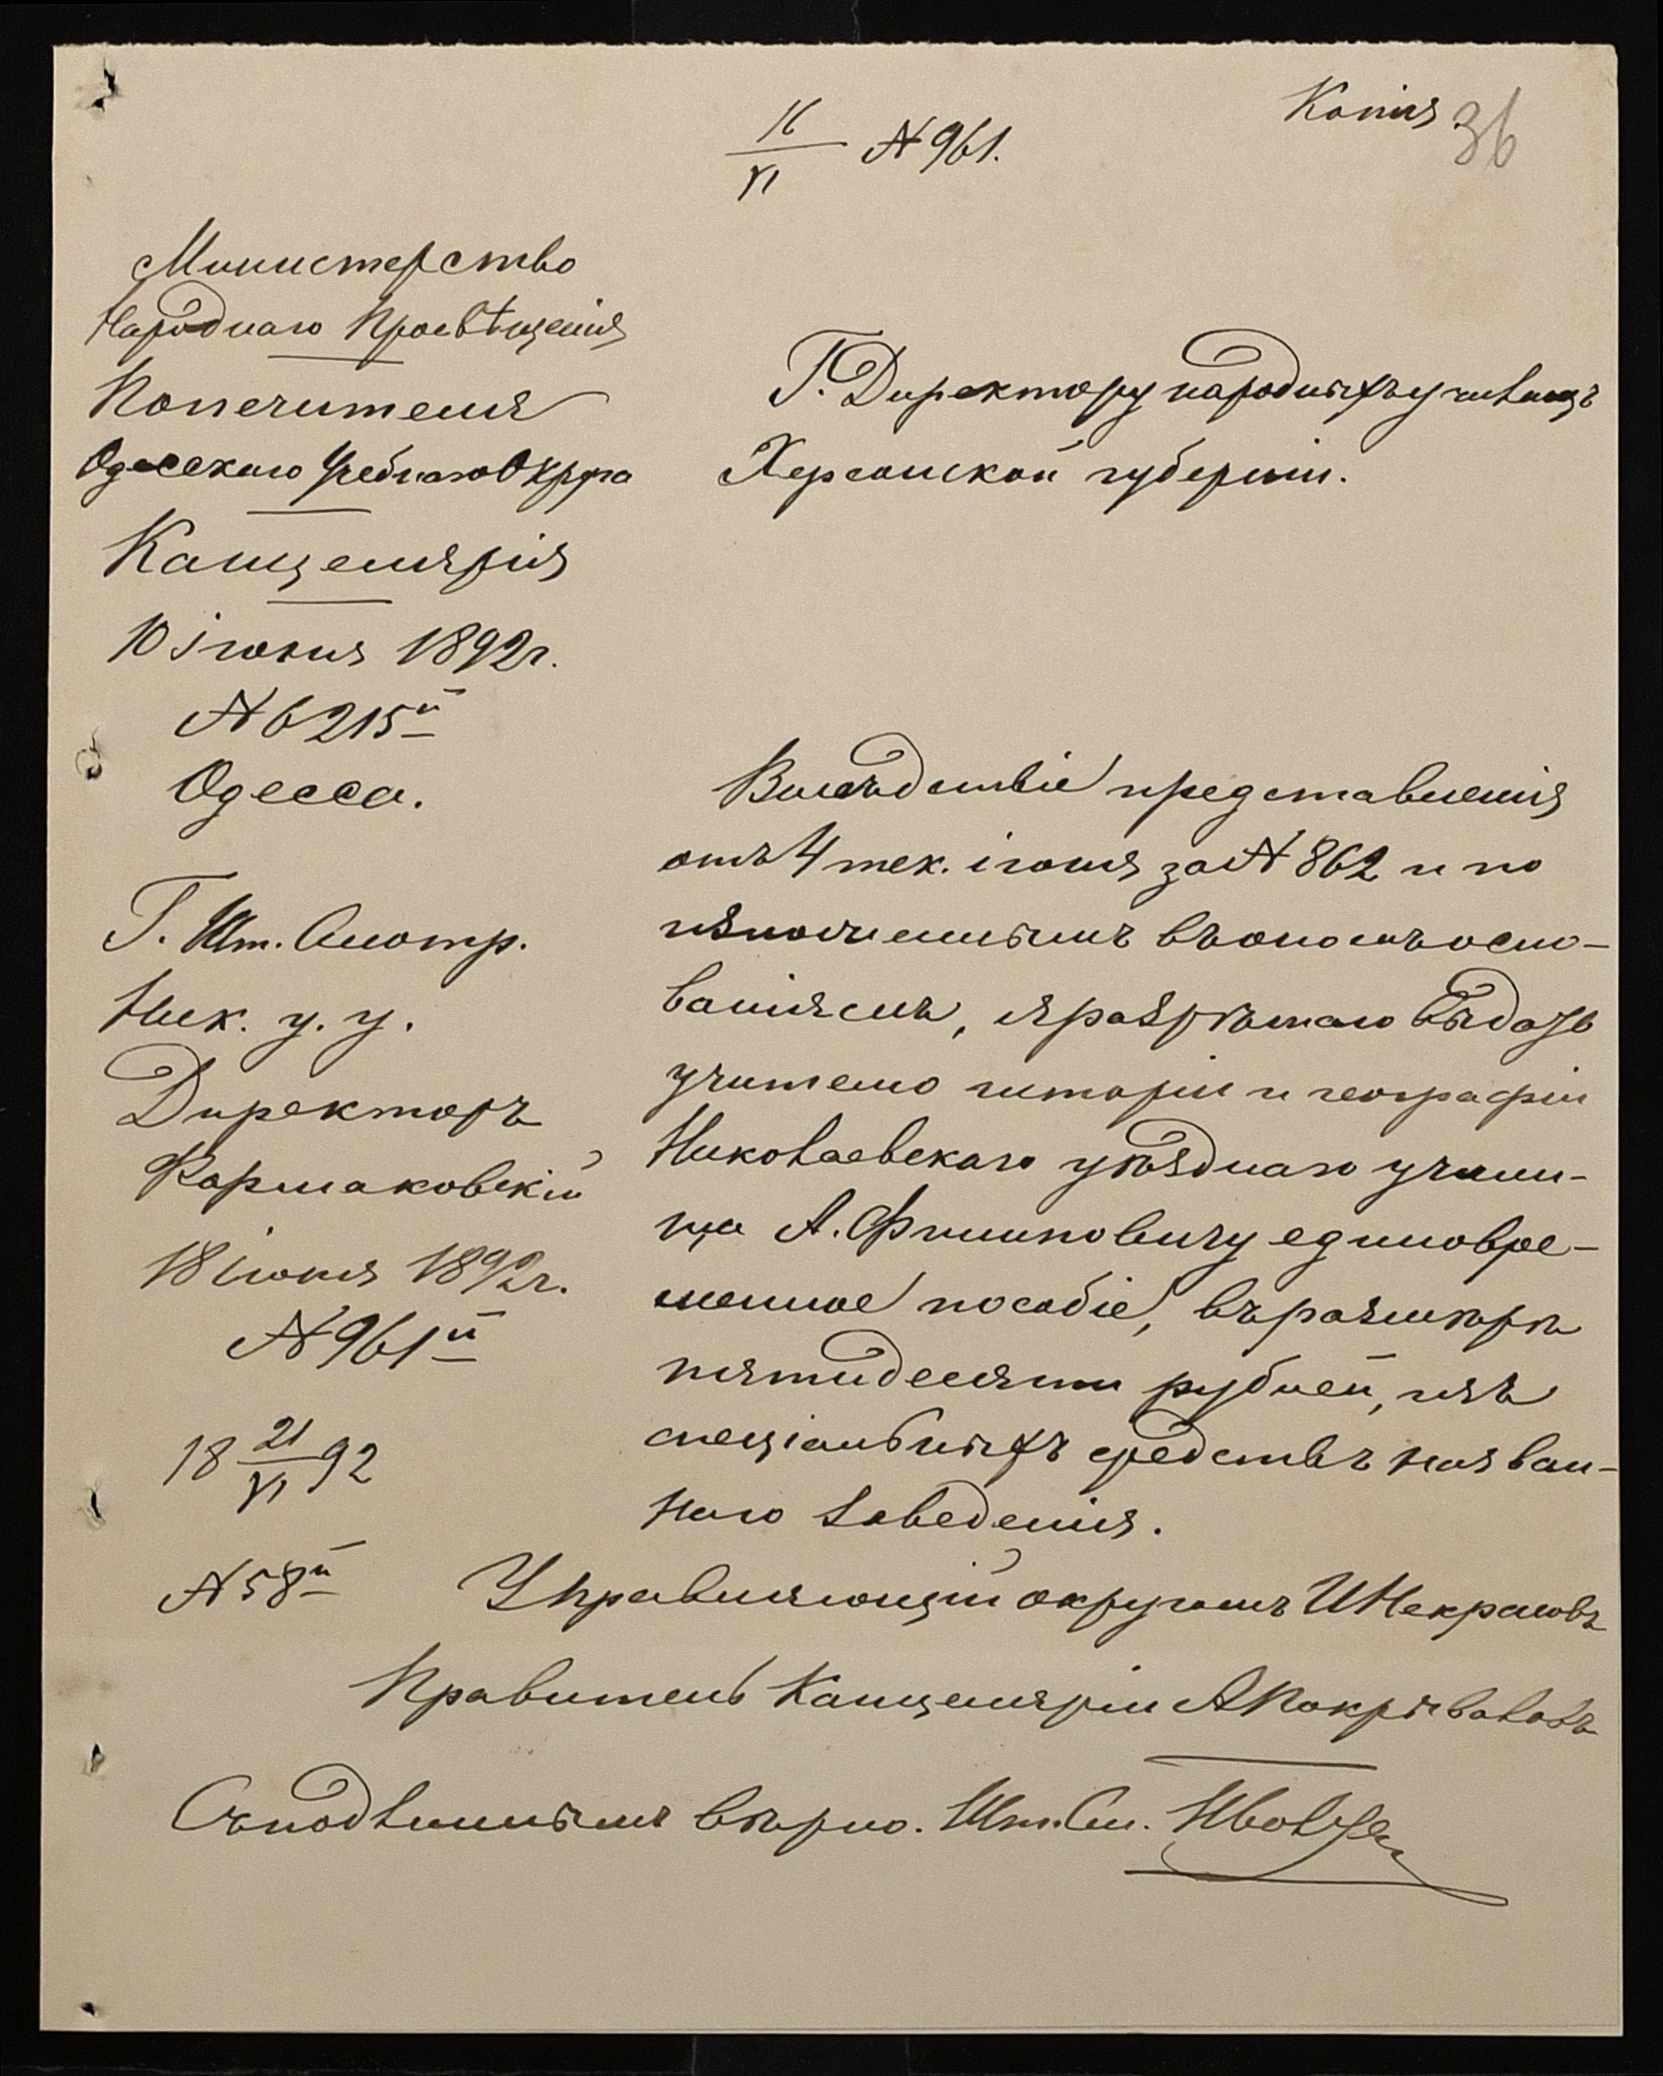 Копія 36
16/VI № 961.
Министерство
Народнаго Просвѣщенія
Попечителя
Одесскаго Учебнаго Округа
Канцелярія
10 іюня 1892 г.
№ 6215й
Одесса.
Г. Шт. Смотр.
Ник. у. у.
Директоръ
Фармаковскій
18 іюня 1892 г.
№ 961й
18 21/VI 92
№ 58й
Г. Директору народныхъ училищъ
Херсонской губерніи.
Вслѣдствіе представленія
отъ 4 тек. іюня за № 862 и по
изложеннымъ въ ономъ осно-
ваніямъ, я разрѣшаю выдать
учителю исторіи и географіи
Николаевскаго уѣзднаго учили-
ща А. Филиповичу единовре-
менное пособіе, въ размѣрѣ
пятидесяти рублей, изъ
спеціальныхъ средствъ назван-
наго заведенія.
Управляющій округомъ И Некрасовъ
Правитель Канцеляріи А Покрываловъ
Съ подлиннымъ вѣрно. Шт. См.